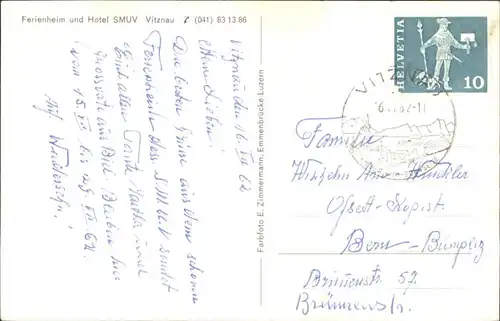 Ferienheim und Hotel SMUV Vitznau (041) 83 13 86
Vitznau den 16. VII 62
Meine Lieben!
Die besten Grüsse aus dem schönen
Ferienheim des S.M.U.V. sendet
Euch allen Tante Martha und
Grossvater aus Biel. Bleiben hier
vom 15. VII bis 29. VII 62.
Auf Wiedersehn!
Farbfoto E. Zimmermann, Emmenbrücke Luzern
HELVETIA
10
VITZNAU
Familie
Winkler
Offset-Kopist
Bern-Bümpliz
Brünnenstr 57.
Brünnenstr.